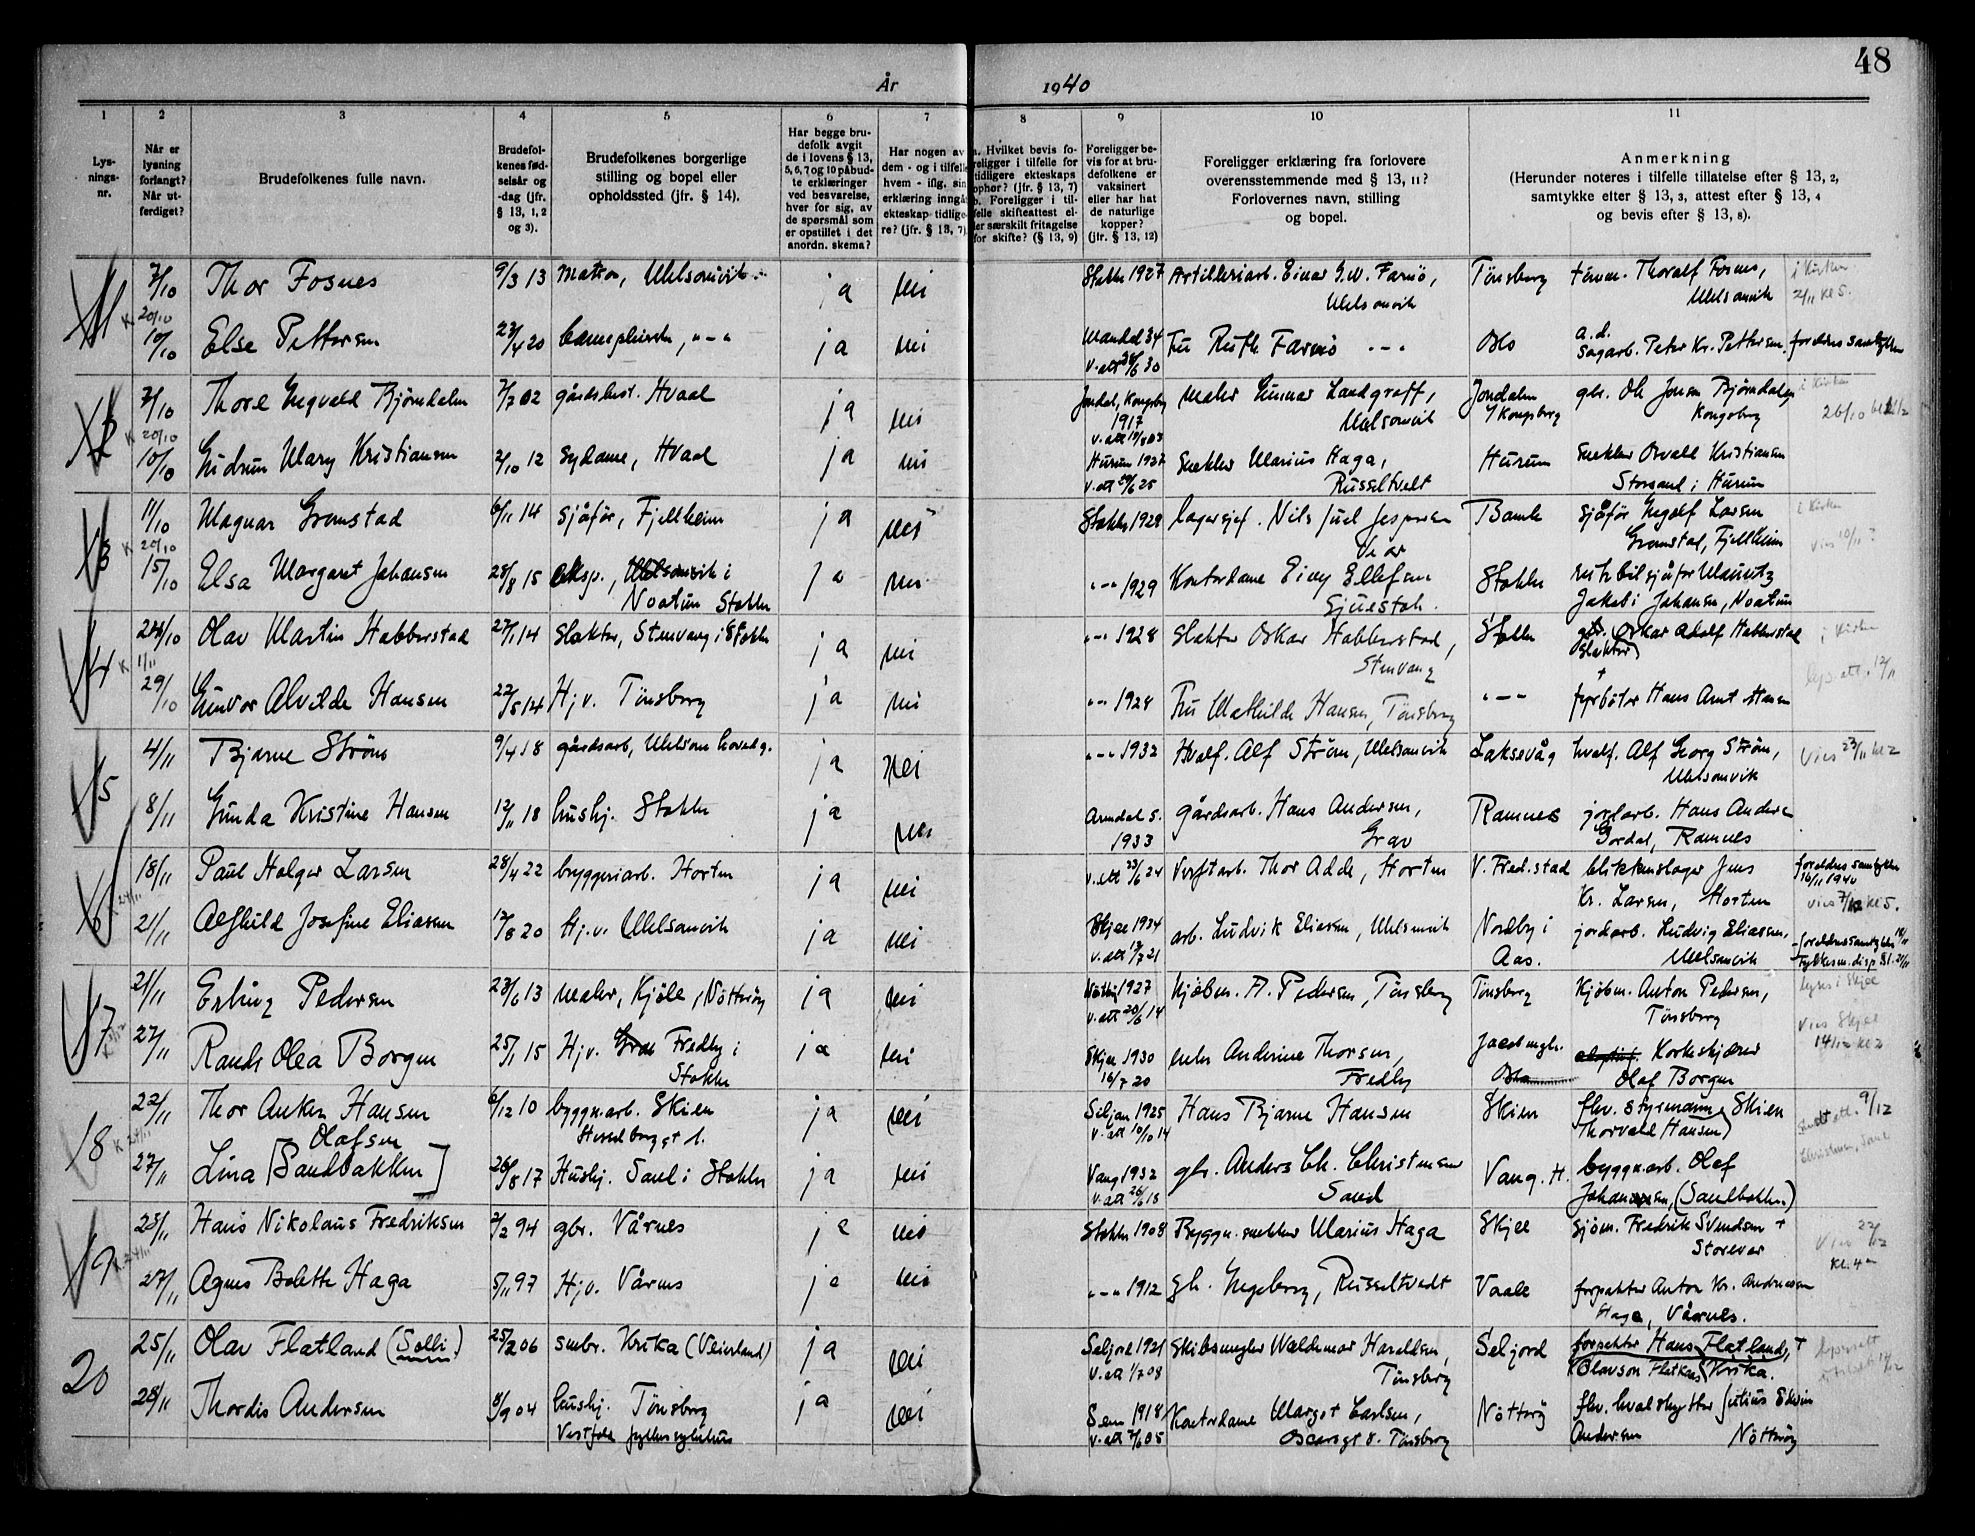 48
År 1940
1 2 3 4 5 6 7 8 9 10 11
Lys-
nings-
nr.
Når er
lysning
forlangt?
Når ut-
ferdiget?
Brudefolkenes fulle navn.
Brudefol-
kenes fød-
selsår og
-dag (jfr.
§ 13, 1, 2
og 3).
Brudefolkenes borgerlige
stilling og bopel eller
opholdssted (jfr. § 14).
Har begge bru-
defolk avgit
de i lovens § 13,
5, 6, 7 og 10 påbud-
te erklæringer
ved besvarelse,
hver for sig, av
de spørsmål som
er opstillet i det
anordn. skema?
Har nogen av
dem - og i tilfelle
hvem - iflg. sin
erklæring inngåt
ekteskap tidlige-
re? (jfr. § 13, 7).
a. Hvilket bevis fo-
religger i tilfelle for
tidligere ekteskaps
ophør? (jfr. § 13, 7)
b. Foreligger i til-
felle skifteattest el-
ler særskilt fritagelse
for skifte? (§ 13, 9)
Foreligger be-
vis for at bru-
defolkene er
vaksinert
eller har hat
de naturlige
kopper?
(jfr. § 13, 12)
Foreligger erklæring fra forlovere
overensstemmende med § 13, 11?
Forlovernes navn, stilling
og bopel.
Anmerkning
(Herunder noteres i tilfelle tillatelse efter § 13, 2,
samtykke efter § 13, 3, attest efter § 13, 4
og bevis efter § 13, 8).
11 7/10 Thor Fosnes 9/3 13 Melsomvik ja nei Stokke 1927 Artilleriarb. Einar G.W. Farmø, Tønsberg Thoralf Fosnes, i Kirken
K 20/10 Melsomvik Melsomvik 2/11 kl 5.
10/10 Else Pettersen 23/4 20 "-" ja nei Mandal 34 Fru Ruth Farmø "-" Oslo sagarb. Peter Kr. Pettersen. foreldres samtykke
v. att 6 30
12 7/10 Thore Ingvald Bjørndalen 7/7 02 gårdsbest. Hvaal ja nei Jondal, Kongsberg maler Gunnar Landgraff, Jondalen gbr. Ole Jonsen Bjørndalen i Kirken
K 20/10 1917 Melsomvik /Kongsberg Kongsberg 26/10
10/10 Gudrun Mary Kristiansen 2/10 12 sydame, Hvaal ja nei Hurum 1927 Snekker Marius Haga, Hurum Snekker Osvald Kristiansen
v. att 6 25 Russeltvedt Storsand i Hurum
13 11/10 Magnar Gromstad 6/11 14 sjåfør, Fjellheim ja nei Stokke 1929 lagersjef. Nils Juel Jespersen Bamle sjåfør Ingolf Larsen i Kirken
K 20/10 Vear Gromstad, Fjellheim vies 10/11 ?
15/10 Elsa Margaret Johansen 28/8 15 eksp., Melsomvik i ja nei "-" 1929 Kontordame Eivy Ellefsen Stokke
Noatun Stokke Gjuestad. Jakobi Johansen, Noatun
14 24/10 Olav Martin Habberstad 27/1 14 Slakter, Stenvang i Stokke ja nei "-" 1928 Slakter Oskar Habberstad, Stokke gbr. Oskar Adolf Habberstad i Kirken
K 1/11 Stenvang (slakter)
29/10 Gunvor Alvilde Hansen 22/5 14 Hjv. Tønsberg ja nei "-" 1928 Fru Mathilde Hansen, Tønsberg "-" fyrbøter Hans Arnt Hansen
15 4/11 Bjarne Strøm 9/4 18 gårdsarb, Melsom hovedg. ja nei "-" 1932 Hvalf. Alf Strøm, Melsomvik Laksevåg hvalf. Alf Georg Strøm, vies 23/11 kl 2
Melsomvik
8/11 Gunda Kristine Hansen 12/11 18 hushj. Stokke ja nei Arendal s. gårdsarb. Hans Andersen, Ramnes jordarb. Hans Andersen
1933 Grav Gordal, Ramnes
16 18/11 Paul Holger Larsen 28/4 22 bryggeriarb. Horten ja nei v. att 23/6 24 Verftarb. Thor Adde, Horten V. Fred.stad blikkenslager Jens foreldres samtykke
K 24/11 Kr. Larsen, Horten 16/11 1940
vies 7/12 kl 5.
21/11 Alfhild Josefine Eliassen 17/8 20 Hj.v. Melsomvik ja nei Skjee 1934 arb. Ludvik Eliassen, Melsomvik Nordby i jordarb. Ludvig Eliassen, foreldres samtykke 18/11
v. att 7 21 Aas. Melsomvik Fylkesm. disp. 21/11
17 21/11 Erling Pedersen 23/6 13 maler, Kjøle, Nøttrøy ja nei 1927 Kjøbm. A. Pedersen, Tønsberg Tønsberg Kjøbm. Anton Pedersen, lyses i Skjee
v. att 20/6 14 Tønsberg vies Skjee
27/11 Randi Olea Borgen 25/1 15 Hjv. Fredby i ja nei Skjee 1930 enke Andrine Thorsen, Jacobmgh. Korkskjærer 14/12 kl 2
Stokke 16/7 20 Fredby Oslo Olaf Borgen
18 22/11 Thor Anker Hansen 6/12 10 byggn.arb. Skien ja nei Siljan 1925 Hans Bjarne Hansen Skien fhv. styrmann Skien 9/12
K 24/11 Olafsen v. att 10/10 14 Thorvald Hansen)
27/11 Lina [Sandbakken] 26/8 17 Hushj. Sand i Stokke ja nei Vang 1932 gbr. Anders Ch. Christensen Vang. H. byggn.arb. Olaf
v. att 26/6 18 Sand Johansen, (Sandbakken)
19 23/11 Hans Nikolaus Fredriksen 2/2 94 gbr. Vårnes ja nei Stokke 1908 Byggn. snekker Marius Haga Skjee sjøm. Fredrik Svendsen + Vies 22/12
K 24/11 Storevar Kl. 4
27/11 Agnes Bolette Haga 5/11 97 Hjv. Vårnes ja nei "-" 1912 Ingeborg, Russeltvedt Vaale forpakter Anton Kr. Andreassen
Haga, Vårnes.
20 25/11 Olav Flatland (Solli) 25/2 06 smbr. Krika (Veierland) ja nei Seljord 1921 Skibsmegler Waldemar Haraldsen, Seljord forpakter Hans Flatland, +
v. att 1/7 08 Tønsberg (Olavson Flatland) Krika.
28/11 Thordis Andersen 8/9 04 hushj. Tønsberg ja nei Sem 1918 Kontordame Margot Carlsen, Nøttrøy fhv. hvalskytter Julius Edvin
Vestfold fylkessykehus v. att 7/6 05 Oscarsgt 8. Tønsberg Andersen Nøttrøy